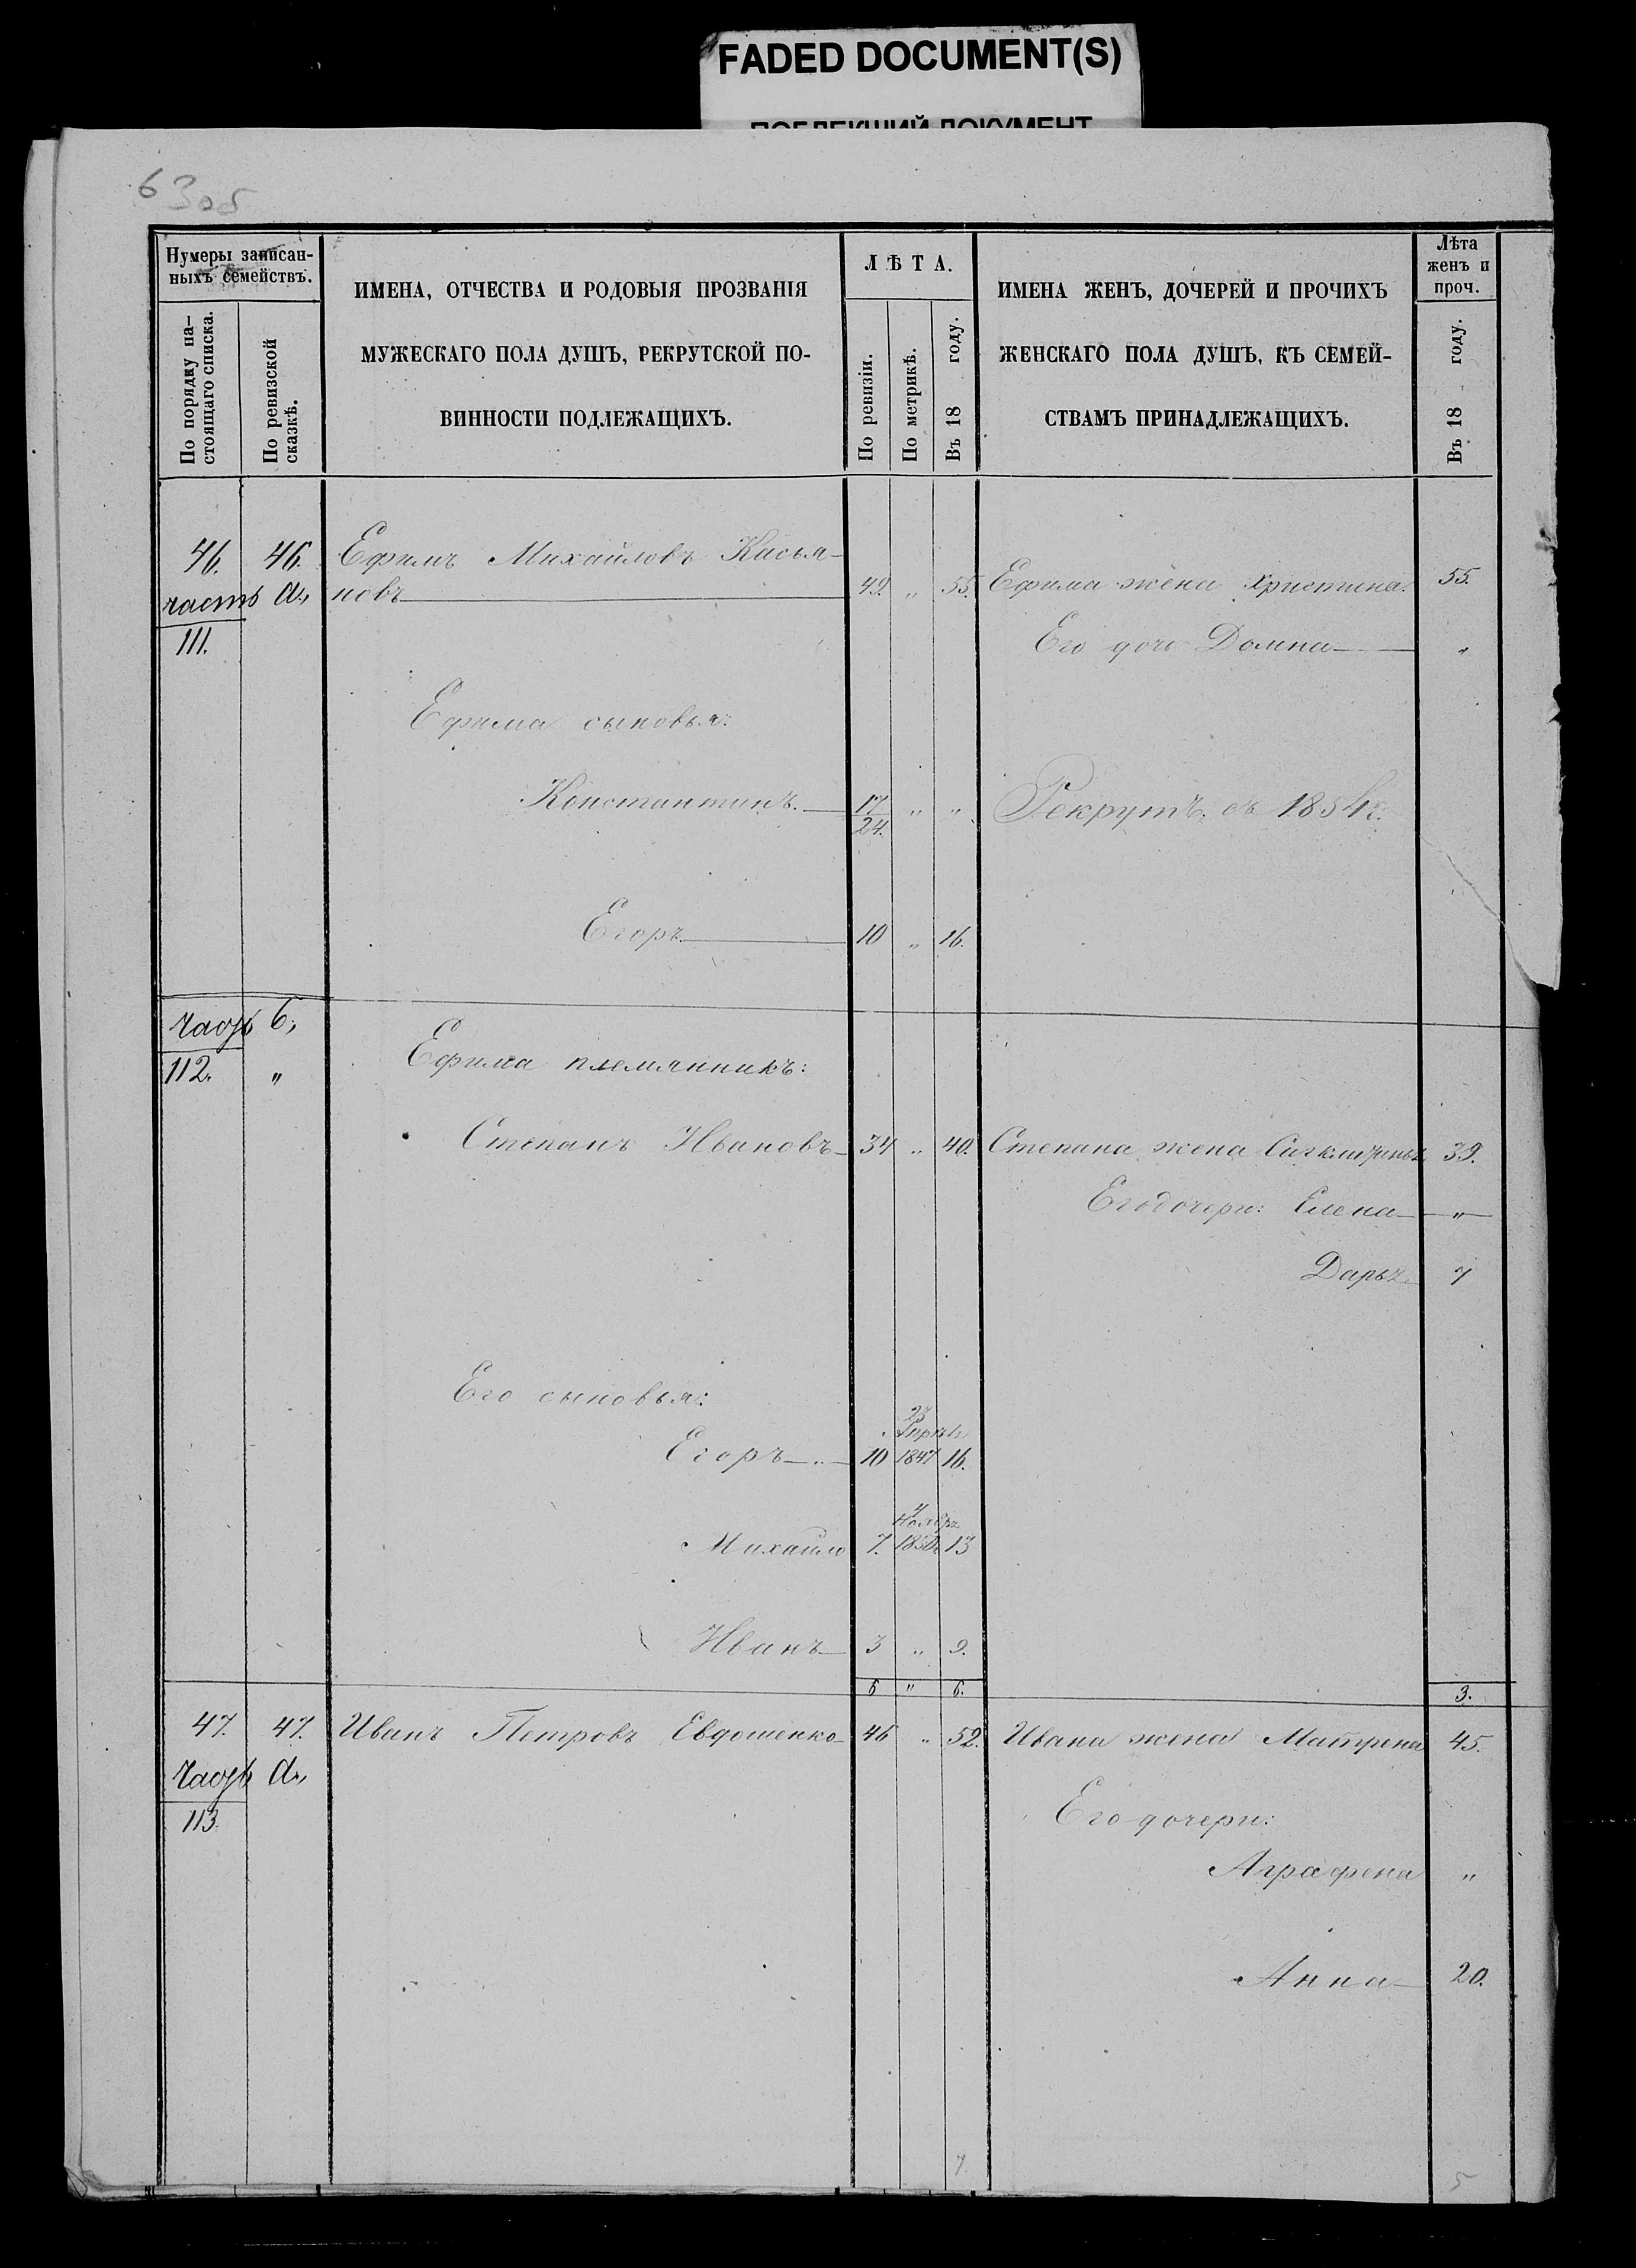 FADED DOCUMENT(S)
ПОБЛЕКШИЙ ДОКУМЕНТ
63об
Нумеры записан-
ныхъ семействъ.
По порядку на-
стоящаго списка.
По ревизской
сказкѣ.
ИМЕНА, ОТЧЕСТВА И РОДОВЫЯ ПРОЗВАНІЯ
МУЖЕСКАГО ПОЛА ДУШЪ, РЕКРУТСКОЙ ПО-
ВИННОСТИ ПОДЛЕЖАЩИХЪ.
ЛѢТА.
По ревизіи.
По метрикѣ.
Въ 18 году.
ИМЕНА ЖЕНЪ, ДОЧЕРЕЙ И ПРОЧИХЪ
ЖЕНСКАГО ПОЛА ДУШЪ, КЪ СЕМЕЙ-
СТВАМЪ ПРИНАДЛЕЖАЩИХЪ.
Лѣта
женъ и
проч.
Въ 18 году.
46. 46. Ефимъ Михайловъ Касья-
часть а., новъ 49. „ 55. Ефима жена Христина. 55.
111. Его дочь Домна „
Ефима сыновья:
Константинъ. 17/24. „ „ Рекрутъ съ 1854 г.
Егоръ 10 „ 16.
часть б,
112. „ Ефима племянникъ:
Степанъ Ивановъ 34 „ 40. Степана жена 39.
Его дочери: Елена „
Дарья 7
Его сыновья:
23
Апрѣл
Егоръ 10 1847 16.
4
Ноябр
Михайло 7. 1850 13
Иванъ 3 „ 9.
6 „ 6. 3.
47. 47. Иванъ Петровъ Евдошенко 46 „ 52. Ивана жена Матрена 45.
часть а.,
113. Его дочери:
Аграфена „
Анна 20.
7. 5